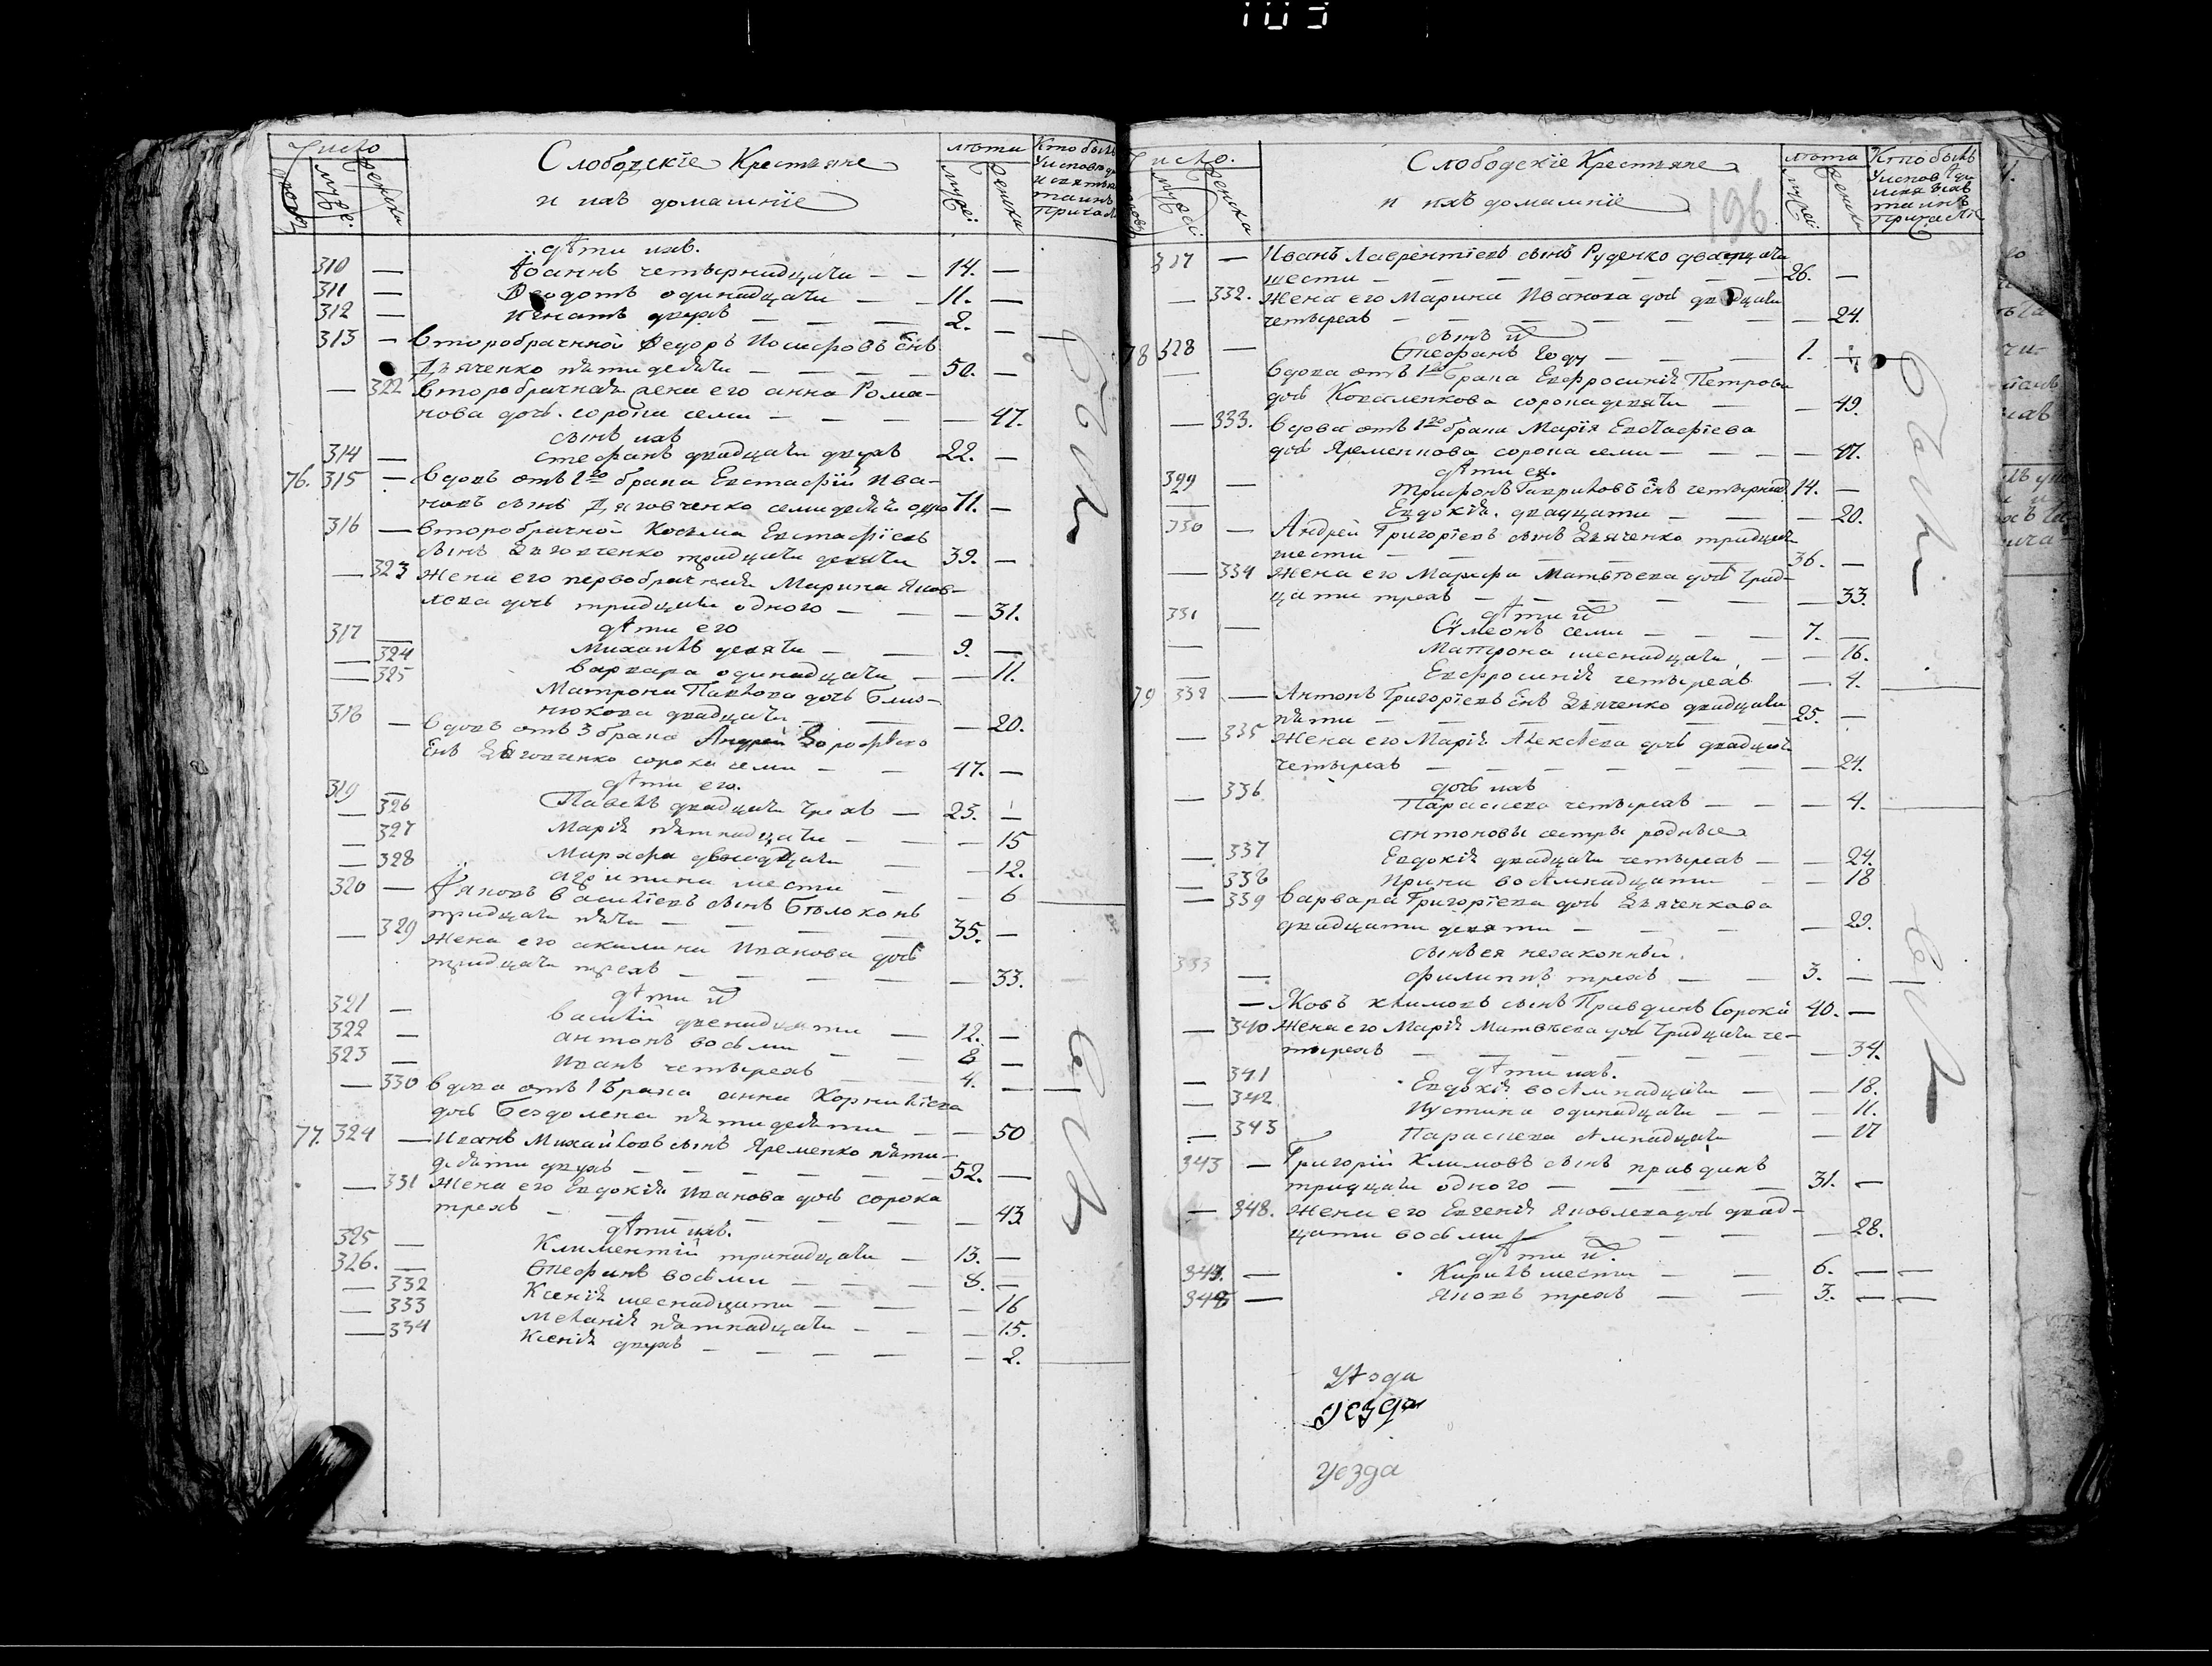 103
Число
Слободскїе Крестьяне
и ихъ домашнїе
лѣта
Кто былъ
дѣти ихъ.
310 — Їоаннъ четырнадцати — — 14. —
311 — Ѳеодотъ одинадцати — — 11. —
312 — Игнатъ двухъ — — — 2. —
313 — Второбрачной Ѳедоръ Иосифовъ снъ
Дьяченко пятидесяти — — — — 50. —
— 322 Второбрачная жена его анна Рома-
нова дочь сорока семи — — — — 47.
сынъ ихъ
314 — Стефанъ двадцати двухъ 22. —
76. 315 — Вдовъ отъ 1го брака Евстафїй Ива-
новъ сынъ Дяговченко семидесяти одно 71. —
316 — Второбрачной Косьма Евстафїевъ
сынъ Дяговченко тридцати девяти 39. —
— 323 Жена его первобрачная Марина Яков-
лева дочь тридцати одного — — — 31.
дѣти его
317 — Михаилъ девяти — — 9. —
— 324 Варвара одинадцати — — 11.
— 325 Матрона Павлова дочь
двадцати — — — 20.
318 — Вдовъ отъ 3 брака Андрей Дорофѣевъ
снъ Дяговченко сорока семи — — 47. —
дѣти его.
319 — Павелъ двадцати трехъ — 23. —
— 326 Марїя пятнадцати — — — 15
— 327 Марфа двенадцати — — 12.
— 328 Агрипина шести — — 6
320 — Їяковъ Василїевъ сынъ Бѣлоконь
тридцати пяти — — — — 35. —
— 329 Жена его акилина Иванова дочь
тридцати трехъ — — — — — 33.
дѣти их
321 — Василїй двенадцати — 12. —
322 — антонъ восьми — — 8 —
323 — Иванъ четырехъ — — 4. —
— 330 Вдова отъ 1 брака анна Корнилїева
дочь пятидесяти — — 50
77. 324 — Иванъ Михайловъ сынъ Яременко пяти-
десяти двухъ — — — — — 52. —
— 331 Жена его Евдокїя Иванова дочь сорока
трехъ — — — — — — 43.
дѣти ихъ.
325 — Климентїй тринадцати — 13. —
326. — Стефанъ восьми — — — 8. —
— 332 Ксенїя шеснадцати — — — 16
— 333 Меланїя пятнадцати — — — 15.
— 334 Ксенїя двухъ — — — — — 2.
Число.
Слободскїе Крестьяне
и ихъ домашнїе
196
лѣта
Кто былъ
327 — Иванъ Лаврентїевъ сынъ Руденко двадцати
шести — — — — — — — 26. —
— 332. Жена его Марина Иванова дочь двадцати
четырехъ — — — — — — — 24.
сынъ их
78 328 — Стефанъ году — — — 1. —
— Вдова отъ 1го брака Евфросинїя Петрова
дочь Коваленкова сорокадевяти — — 49.
— 333. Вдова отъ 1го брака Марїя Евстафїева
дочь Яременкова сорока семи — — — 47.
дѣти ея.
399 — Трифонъ Гавриловъ снъ четырнад. 14. —
— Евдокїя двадцати — — — 20.
330 — Андрей Григорїевъ сынъ Дьяченко тридцати
шести — — — — — 36. —
— 334 Жена его Марфа Матвѣева дочь трид-
цати трехъ — — — — — — 33.
дѣти их
331 — Сѵмеонъ семи — — — 7. —
— Матрона шеснадцати — — 16.
— Евфросинїя четырехъ — 4.
79 332 — Антонъ Григорїевъ снъ Дьяченко двадцати
пяти — — — — — — 25. —
— 335 Жена его Марїя Алексѣева дочь двадцати
четырехъ — — — — — — — 24.
дочь ихъ
— 336 Параскева четырехъ — — — 4.
антоновы сестры родные
— 337 Евдокїя двадцати четырехъ — — 24.
— 338 Ирина восѣмнадцати — — 18
— 339 Варвара Григорїева дочь Дьяченкова
двадцати девяти — — — — 29.
сынъ ея незаконный.
333 — Филиппъ трехъ — — 3. —
— Яковъ Климовъ сынъ Правдинъ сорока 40. —
— 340 Жена его Марїя Матвѣева дочь тридцати че-
тырехъ — — — — — — — 34.
дѣти ихъ.
— 341 Евдокїя восѣмнадцати — — 18.
— 342 Иустина одинадцати — — — 11.
— 343 Параскева сѣмнадцати — 17
343 — Григорїй Климовъ сынъ правдинъ
тридцати одного — — — — 31. —
— 348. Жена его Евгенїя Яковлева дочь двад-
цати восьми — — — — 28.
дѣти их.
344. — Кирилъ шести — — 6. — —
345 — Яковъ трехъ — — 3. — —
Уѣзда
Уезда
Уезда